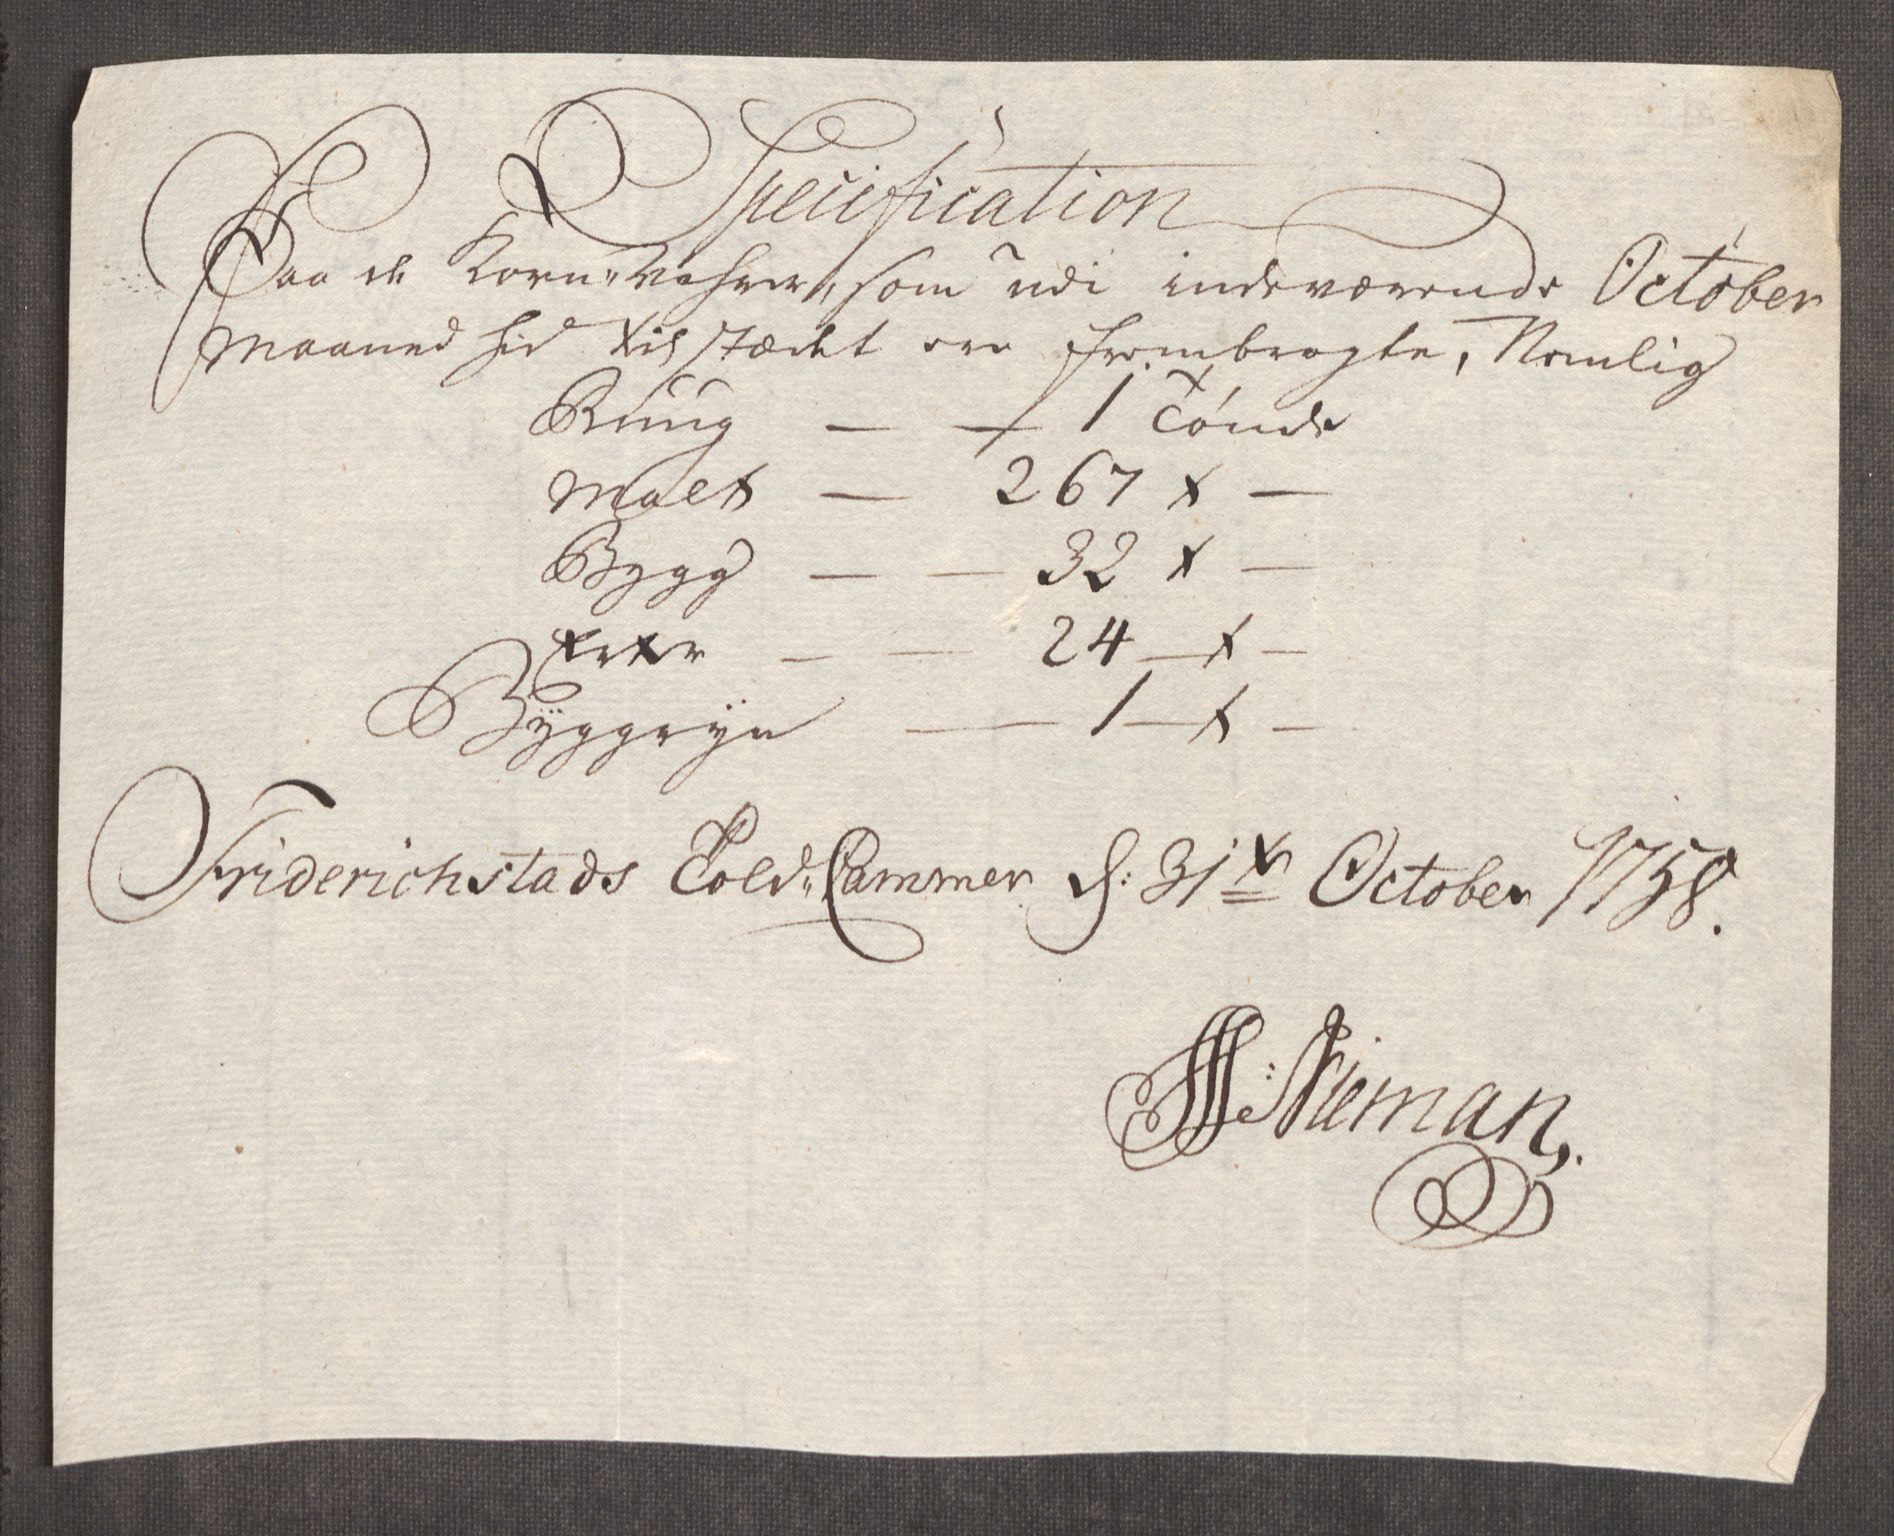 Specification
Paa de Korn-Vahrer, som udi indeværende October
Maaned hid til stædet ere frembragte, Nemlig
Ruug — — 1 Tønde
Malt — 267 t —
Bygg — — 32 t —
Erter — — 24 — t —
Bÿggrÿn — 1 — t —
Friderichstads Told-Cammer d: 31te October 1758.
Nieman,